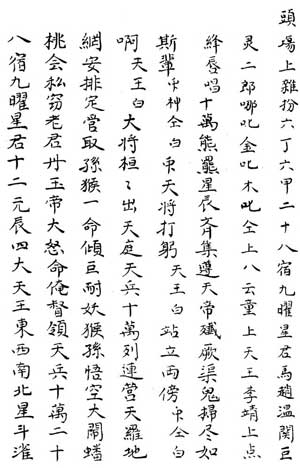 頭場上雜扮六丁六甲二十八宿九曜星君馬趙溫關巨
灵二郎哪吒金吒木吒仝上八云童上天王李靖上点
絳唇唱十萬熊羆星辰齊集遵天帝殲厥渠鬼掃尽如
斯輩中神仝白末天將打躬天王白站立兩傍中仝白
啊天王白大將桓〻出天庭天兵十萬列連營天羅地
網安排定管取孫猴一命傾叵耐妖猴孫悟空大鬧蟠
桃会私窃老君丹玉帝大怒命俺督領天兵十萬二十
八宿九曜星君十二元辰四大天王東西南北星斗灌